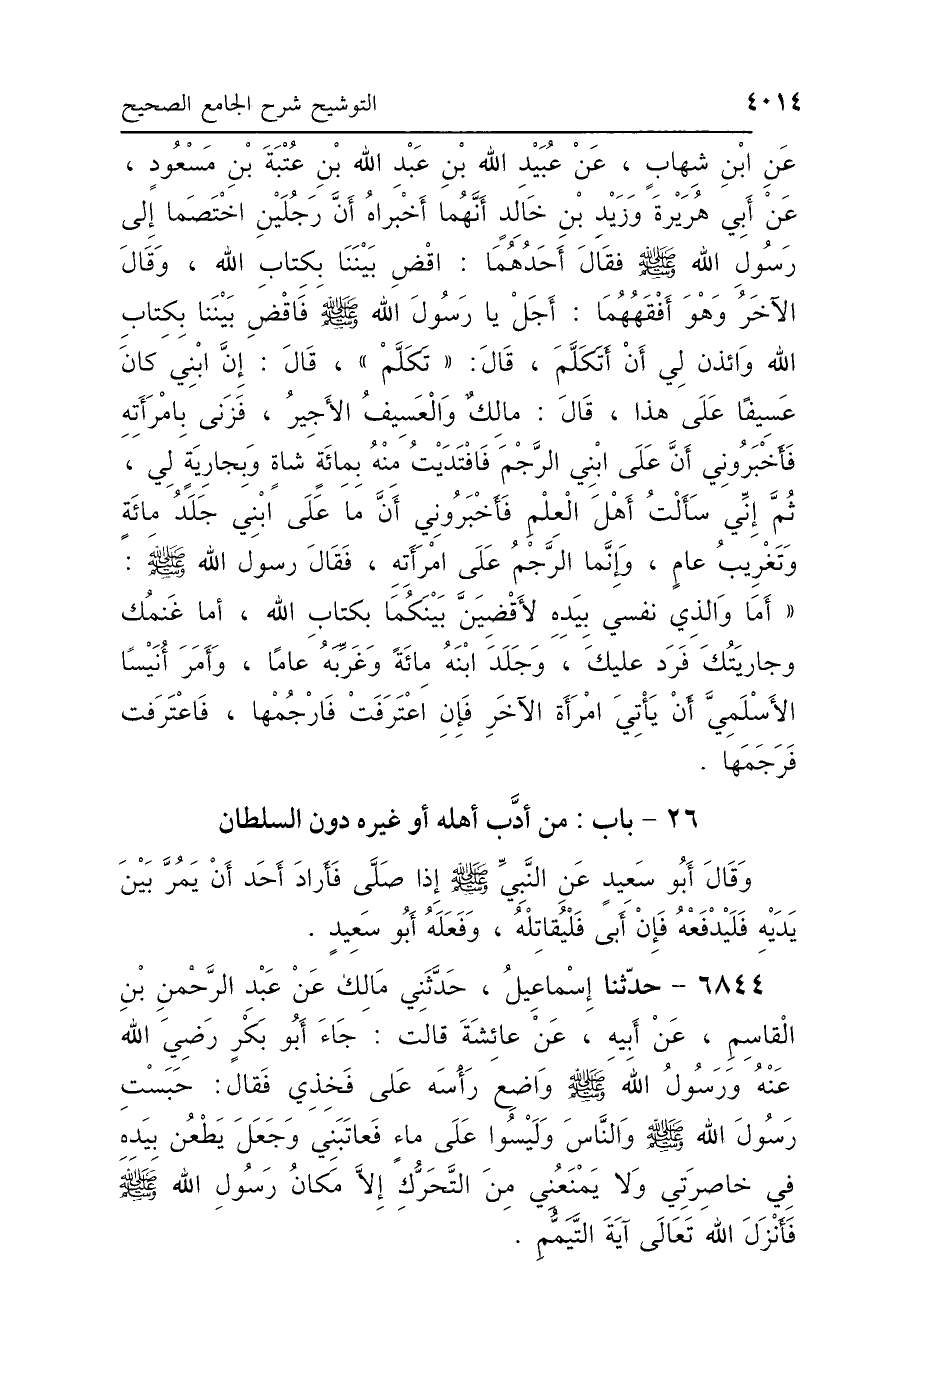 ٤٠١٤ التوشيح شرح الجامع الصحيح
عَنِ ابْنِ شِهابٍ ، عَنْ عُبَيْدِ الله بْنِ عَبْدِ الله بْنِ عُتْبَةَ بْنِ مَسْعُودٍ ،
عَنْ أَبي هُرَيْرةَ وَزَيْدِ بْنِ خَالِدٍ أَنَّهُما أَخْبراهُ أَنَّ رَجُلَيْنِ اخْتَصَما إلى
رَسُولِ الله ﷺ فقَالَ أَحَدُهُمَا : اقْضِ بَيْنَنَا بِكتابِ الله ، وَقَالَ
الآخَرُ وَهْوَ أَفْقَهُهُمَا : أَجَلْ يا رَسُولَ الله ﷺ فَاقْضِ بَيْنَنا بِكِتابِ
الله وَائذن لِي أَنْ أَتَكَلَّمَ ، قَالَ: « تَكَلَّمْ » ، قَالَ : إِنَّ ابْنِي كانَ
عَسِيفًا عَلَى هذا ، قَالَ : مالكٌ وَالْعَسِيفُ الأَجيرُ ، فَزَنى بِامْرَأَتِهِ
فَأَخْبَرُونِي أَنَّ عَلَى ابْنِي الرَّجْمَ فَافْتَدَيْتُ مِنْهُ بِمِائَةِ شاةٍ وَبِجارِيَةٍ لِي ،
ثُمَّ إِنِّي سَأَلْتُ أَهْلَ الْعِلْمِ فَأَخْبَرُونِي أَنَّ ما عَلَى ابْنِي جَلَدُ مِائَةٍ
وَتَغْرِيبُ عامٍ ، وَإِنَّما الرَّجْمُ عَلَى امْرَأَتِهِ ، فَقَالَ رسول الله ﷺ :
« أَمَا وَالذي نفسي بِيَدِهِ لأَقْضِيَنَّ بَيْنَكُمَا بِكتابِ الله ، أما غَنمُك
وجاريَتُكَ فَرَد عليكَ ، وَجَلَدَ ابْنَهُ مائَةً وَغَرَّبَهُ عامًا ، وَأَمَرَ أُنَيْسًا
الأَسْلَمِيَّ أَنْ يَأْتِيَ امْرَأَةَ الآخَرِ فَإِنِ اعْتَرَفَتْ فَارْجُمْها ، فَاعْتَرَفت
فَرَجَمَها .
٢٦ – باب : من أدَّب أهله أو غيره دون السلطان
وَقَالَ أَبُو سَعِيدٍ عَنِ النَّبِيِّ ﷺ إذا صَلَّى فَأَرادَ أَحَد أَنْ يَمُرَّ بَيْنَ
يَدَيْهِ فَلْيَدْفَعْهُ فَإِنْ أَبى فَلْيُقاتِلْهُ ، وَفَعَلَهُ أَبُو سَعِيدٍ .
٦٨٤٤ – حدّثنا إسْماعِيلُ ، حَدَّثَنِي مَالكٌ عَنْ عَبْدِ الرَّحْمنِ بْنِ
الْقاسِمِ ، عَنْ أَبِيهِ ، عَنْ عائِشَةَ قالت : جَاءَ أَبُو بَكْرٍ رَضِيَ الله
عَنْهُ وَرَسُولُ الله ﷺ وَاضِع رَأْسَه عَلى فَخِذِي فَقالَ: حَبَسْتِ
رَسُولَ الله ﷺ وَالنَّاسَ وَلَيْسُوا عَلَى ماءٍ فَعاتَبَنِي وَجَعَلَ يَطْعُن بِيَدِهِ
فِي خاصِرَتِي وَلا يَمْنَعُنِي مِنَ التَّحَرُّكِ إلاَّ مَكانُ رَسُولِ الله ﷺ
فَأَنْزَلَ الله تَعَالَى آيَةَ التَّيَمُّمِ .